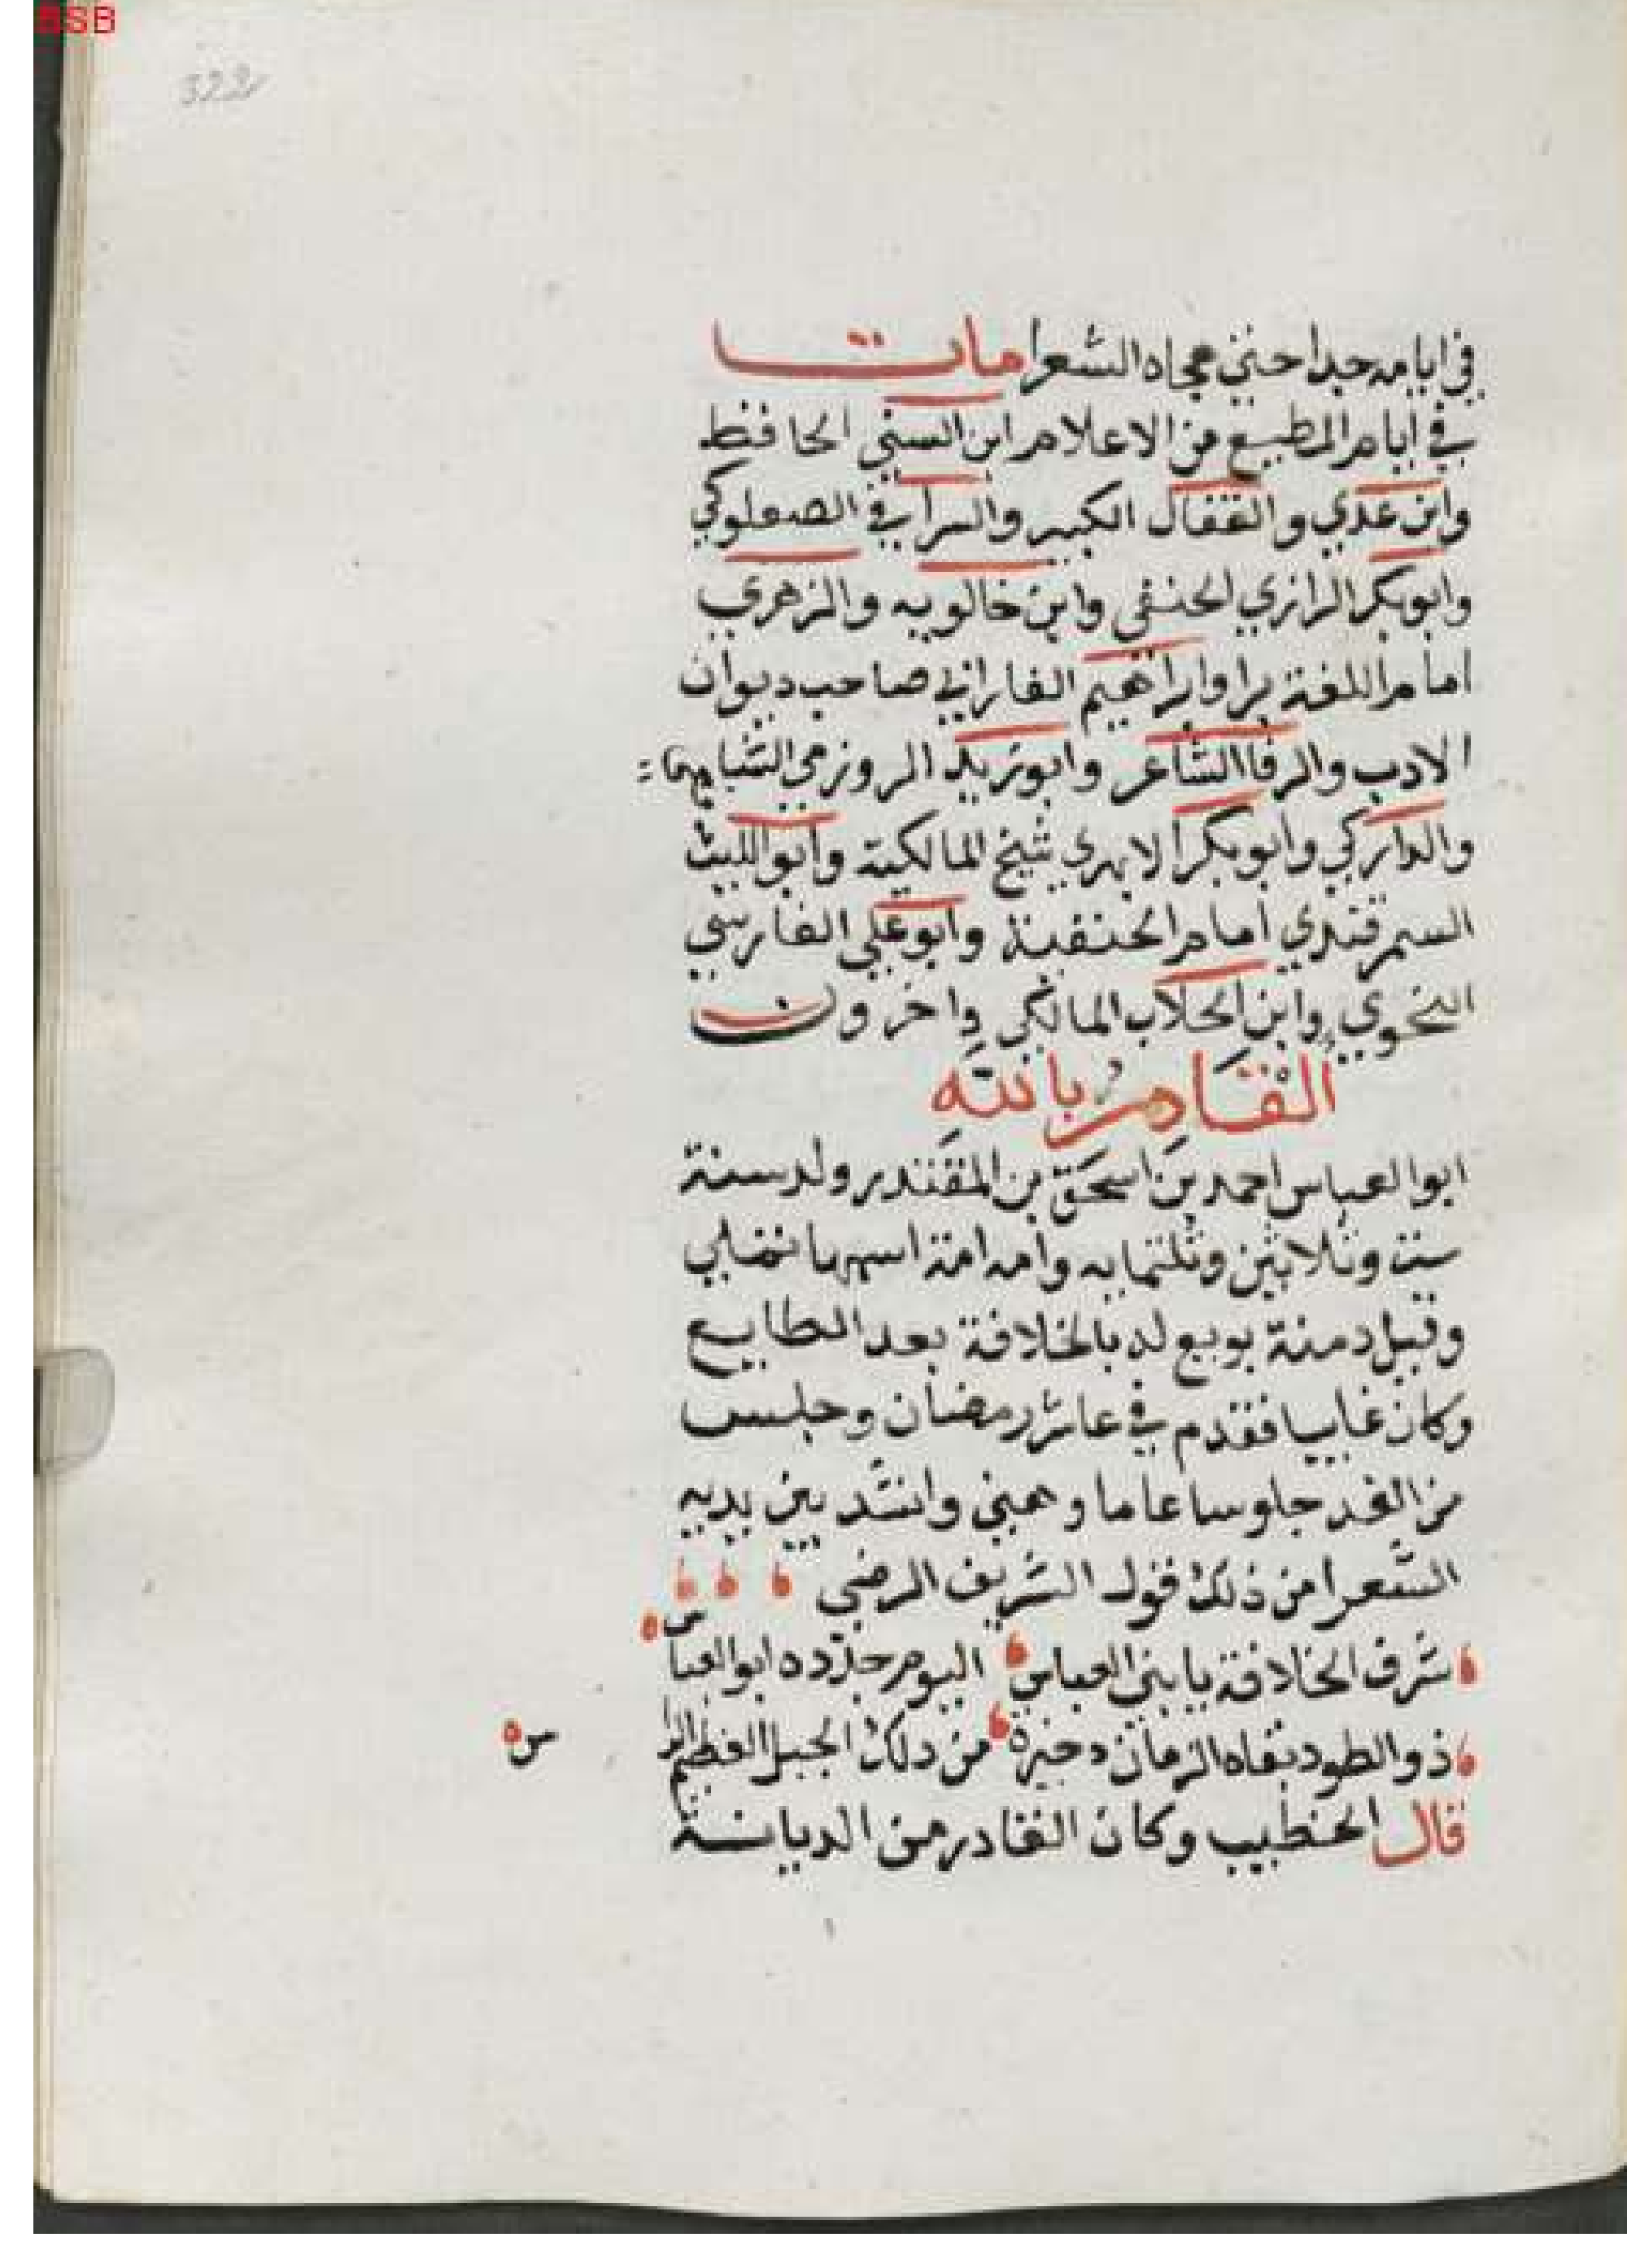 322
في ايامه جدا حتى هجاه الشعرا مات
في ايام المطيع من الاعلام ابن السني الحافظ
وابن عدي والقفال الكبير والسرافي الصعلوكي
وابوبكر الرازي الحنفي وابن خالويه والزهري
امام اللغة وابراهيم الفارابي صاحب ديوان
الادب والرفا الشاعر وابوزيد المروزي الشافعي
والداركي وابوبكر الابهري شيخ المالكية وابوالليث
السمرقندي امام الحنفية وابوعلي الفارسي
النحوي وابن الجلاب المالكي واخرون
القادر بالله
ابوالعباس احمد بن اسحق بن المقتدر ولد سنة
ست وثلاثين وثلثمايه وامه امة اسمها تمني
وقيل دمنة بويع له بالخلافة بعد الطايع
وكان غايبا فقدم في عاشر رمضان وجلس
من الغد جلوسا عاما وهني وانشد بين يديه
الشعرا من ذلك قول الشريف الرضي
شرف الخلافة يابني العباس اليوم جدده ابوالعباس
ذوالطود بقاه الزمان دخيرة من دلك الجبل العظيم الراس
قال الخطيب وكان القادر من الديانة